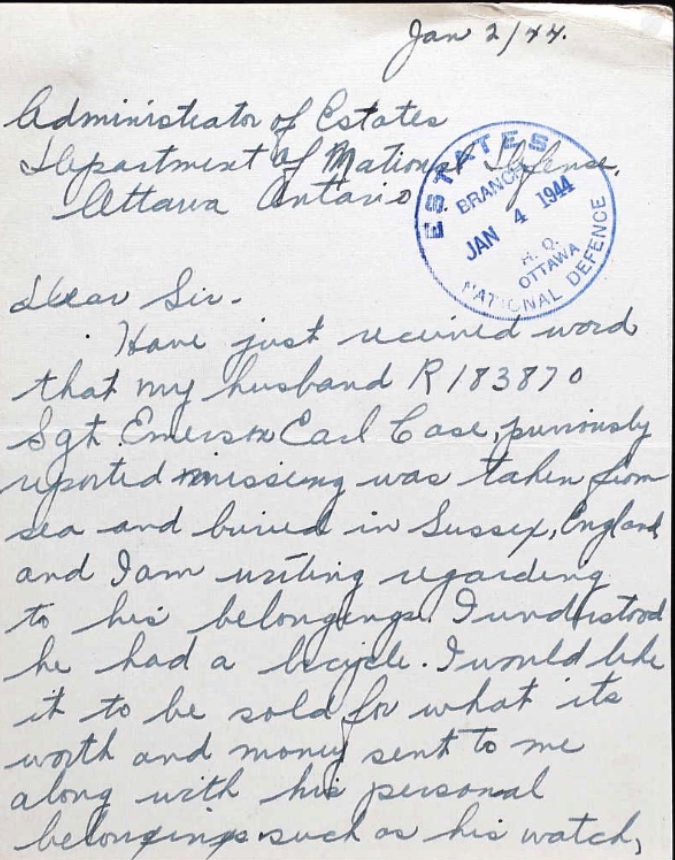 Jan 2/44.
Administrator of Estates
Department of National Defense,
Ottawa Ontario
ESTATES
BRANCH
JAN 4 1944
H.Q.
OTTAWA
NATIONAL DEFENCE
Dear Sir.
Have just received word
that my husband R183870
Sgt. Emerson Earl Case, previously
reported missing was taken from
sea and buried in Sussex, England
and I am writing regarding
to his belongings. I understood
he had a bicycle. I would like
it to be sold for what its
worth and money sent to me
along with his personal
belongings such as his watch,